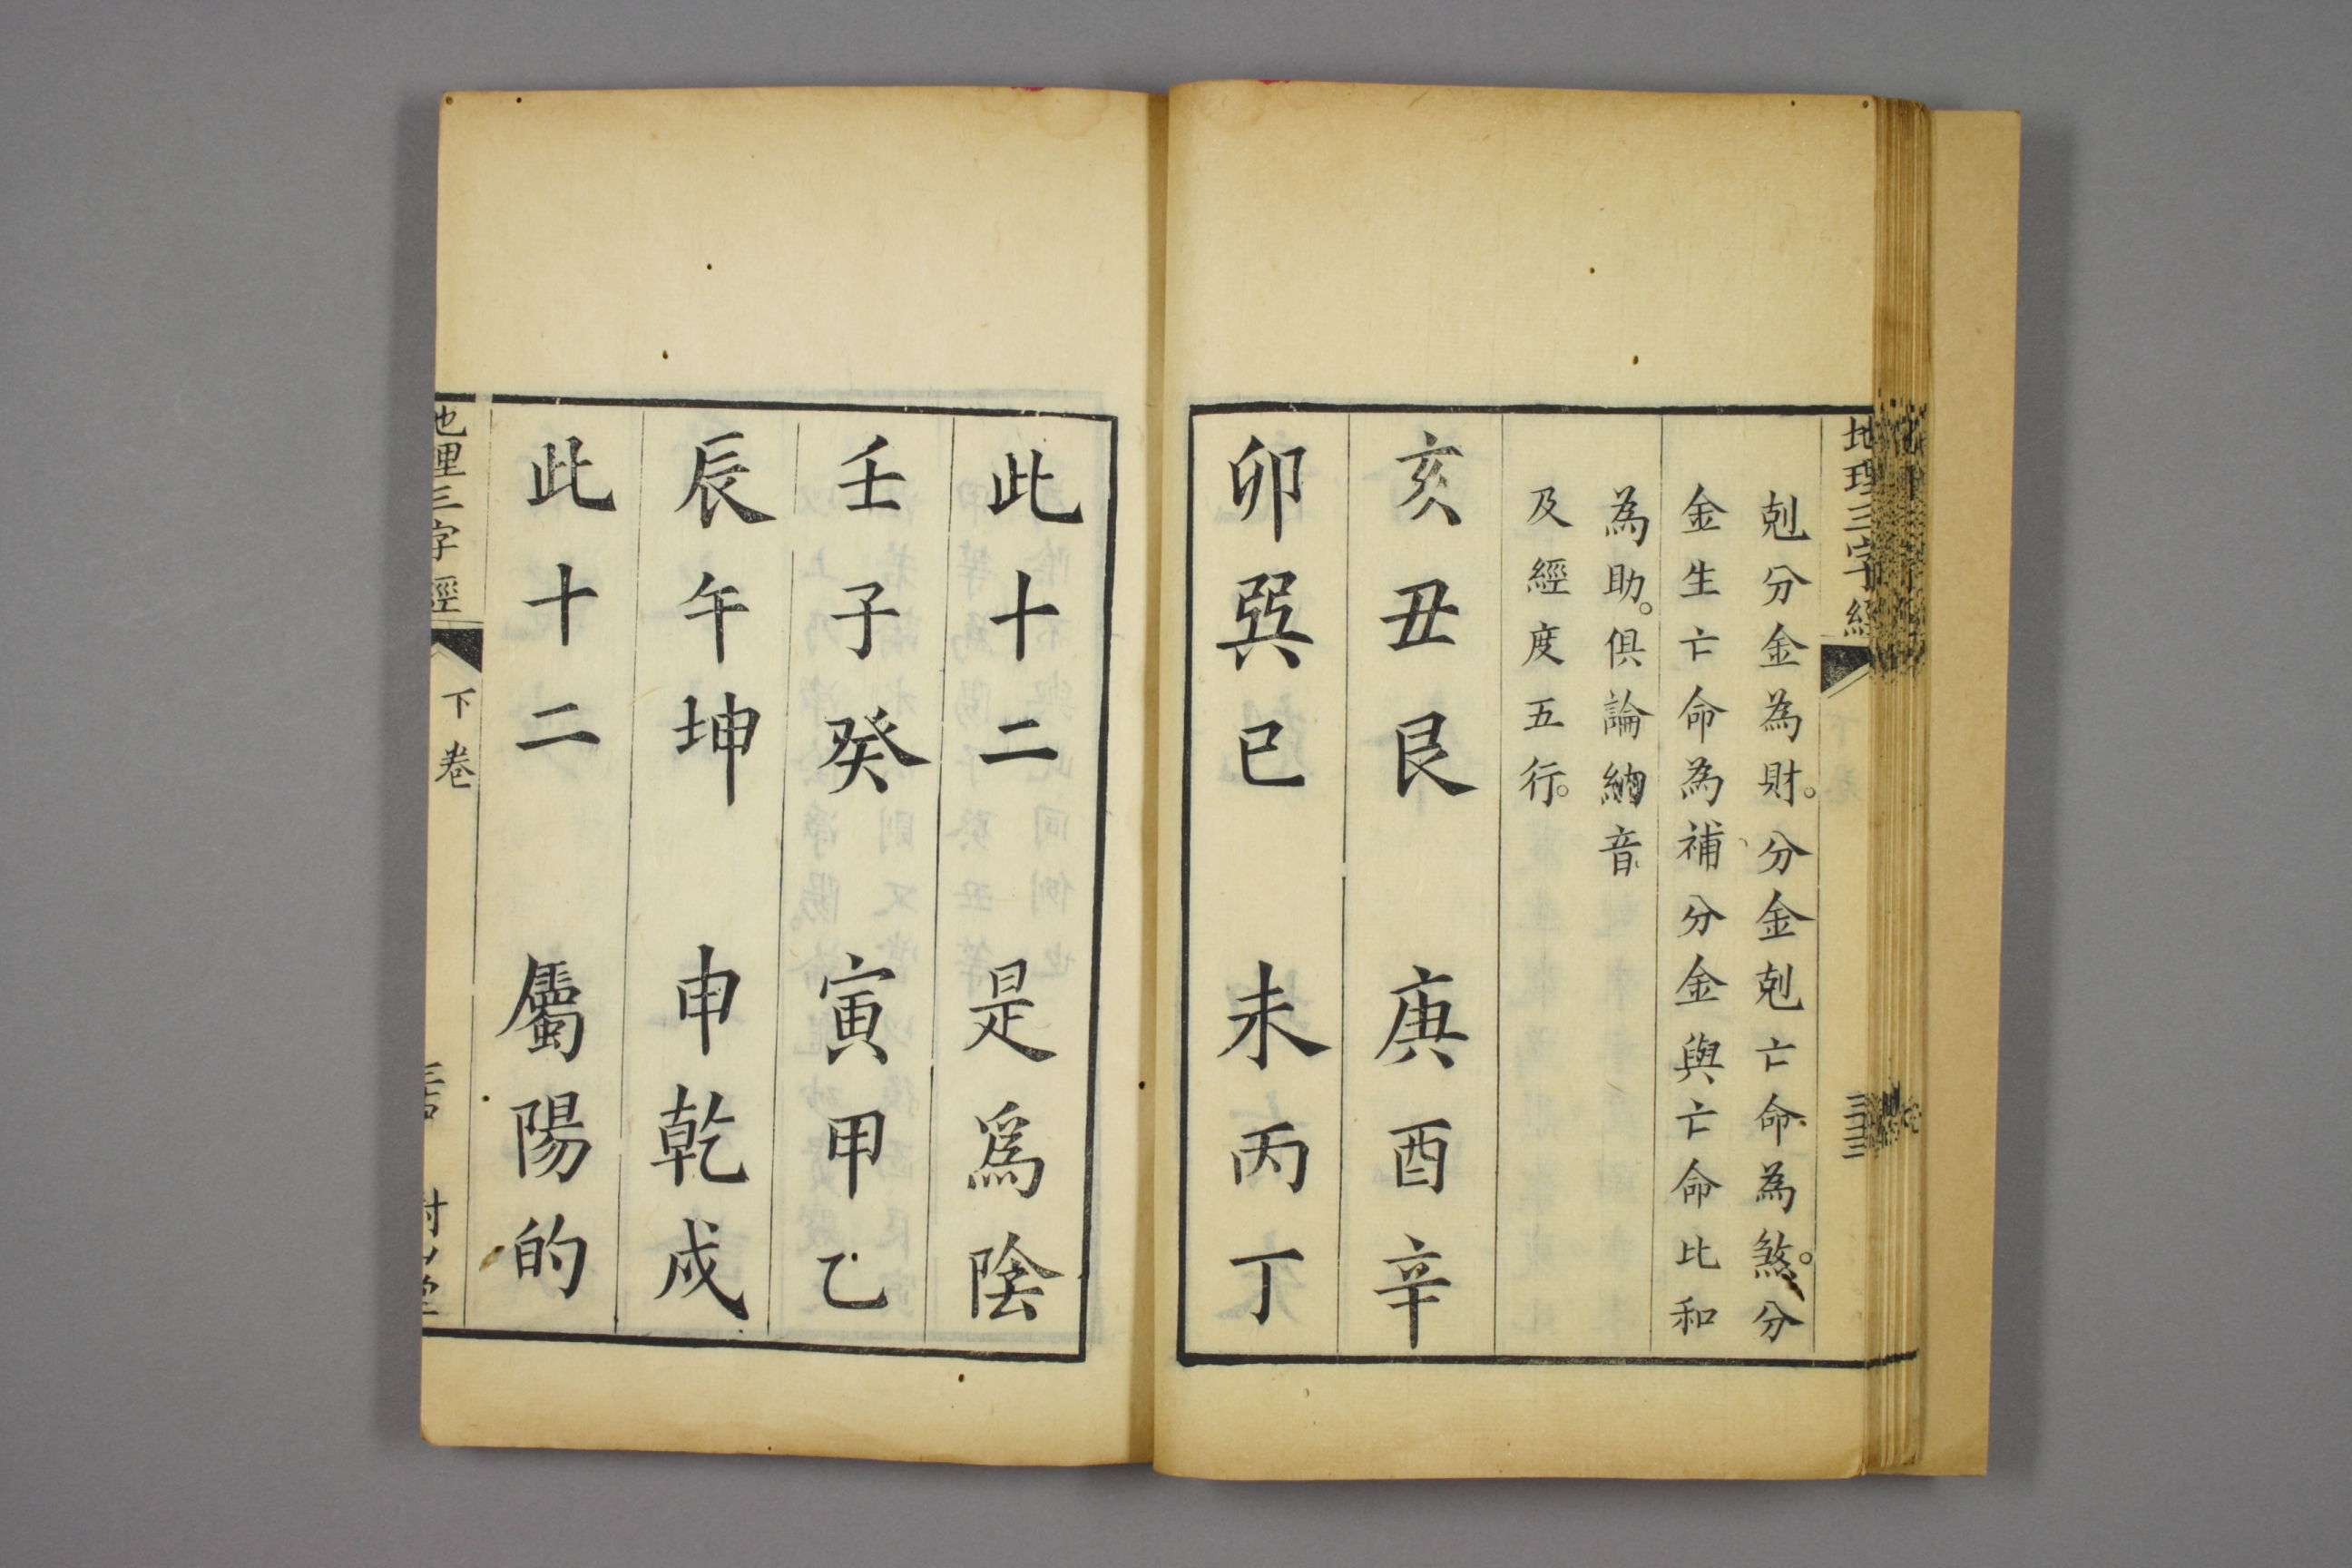 地理三字經
剋分金為財。分金剋亡命為煞。分
金生亡命為補分金與亡命比和
為助。俱論納音
及經度五行。
亥丑艮　庚酉辛
卯巽巳　未丙丁
此十二　是爲陰
壬子癸　寅甲乙
辰午坤　申乾戍
此十二　屬陽的
地理三字經
下卷